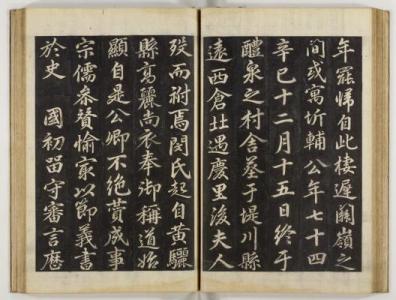 年罷歸自此棲遲關嶺之
間或寓圻輔公年七十四
辛巳十二月十五日終于
醴泉之村舍墓于堤川縣
遠西倉北遇慶里後夫人
歿而祔焉閔氏起自黃驪
縣高麗尚衣奉御稱道始
顯自是公卿不絕贊成事
宗儒叅贊愉家以節義書
於史 國初留守審言歷